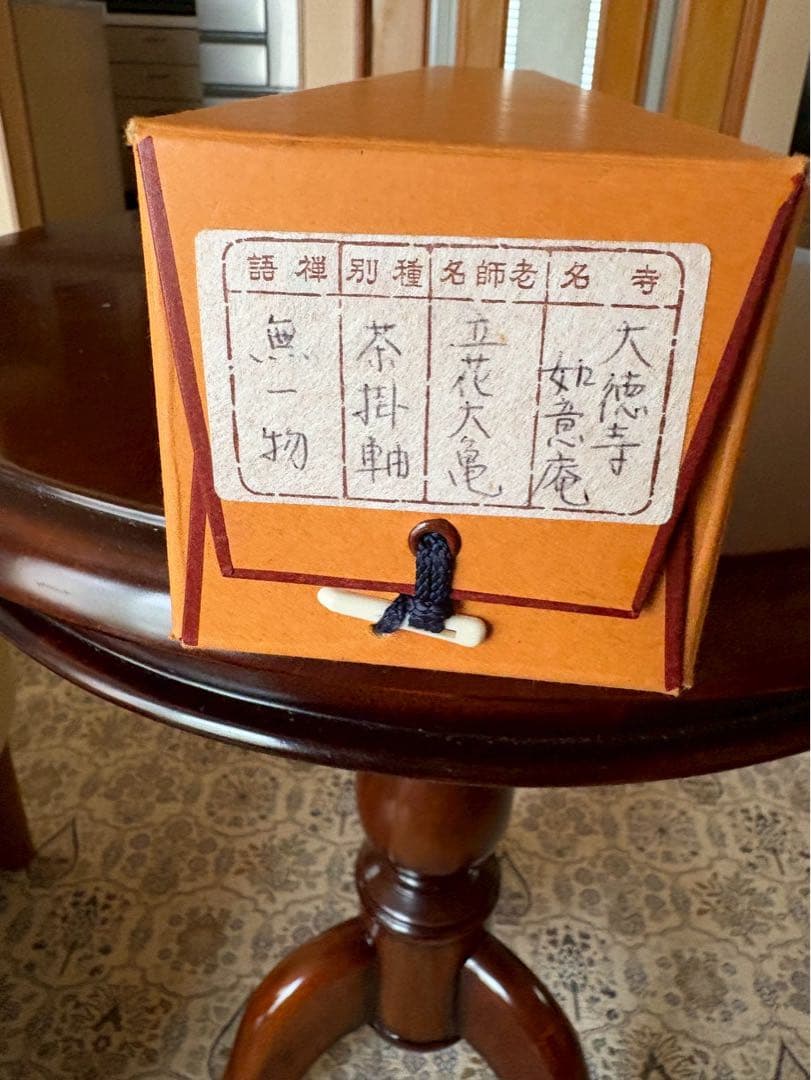 寺名
大徳寺
如意庵
老師名
立花大亀
種別
茶掛軸
禅語
無一物